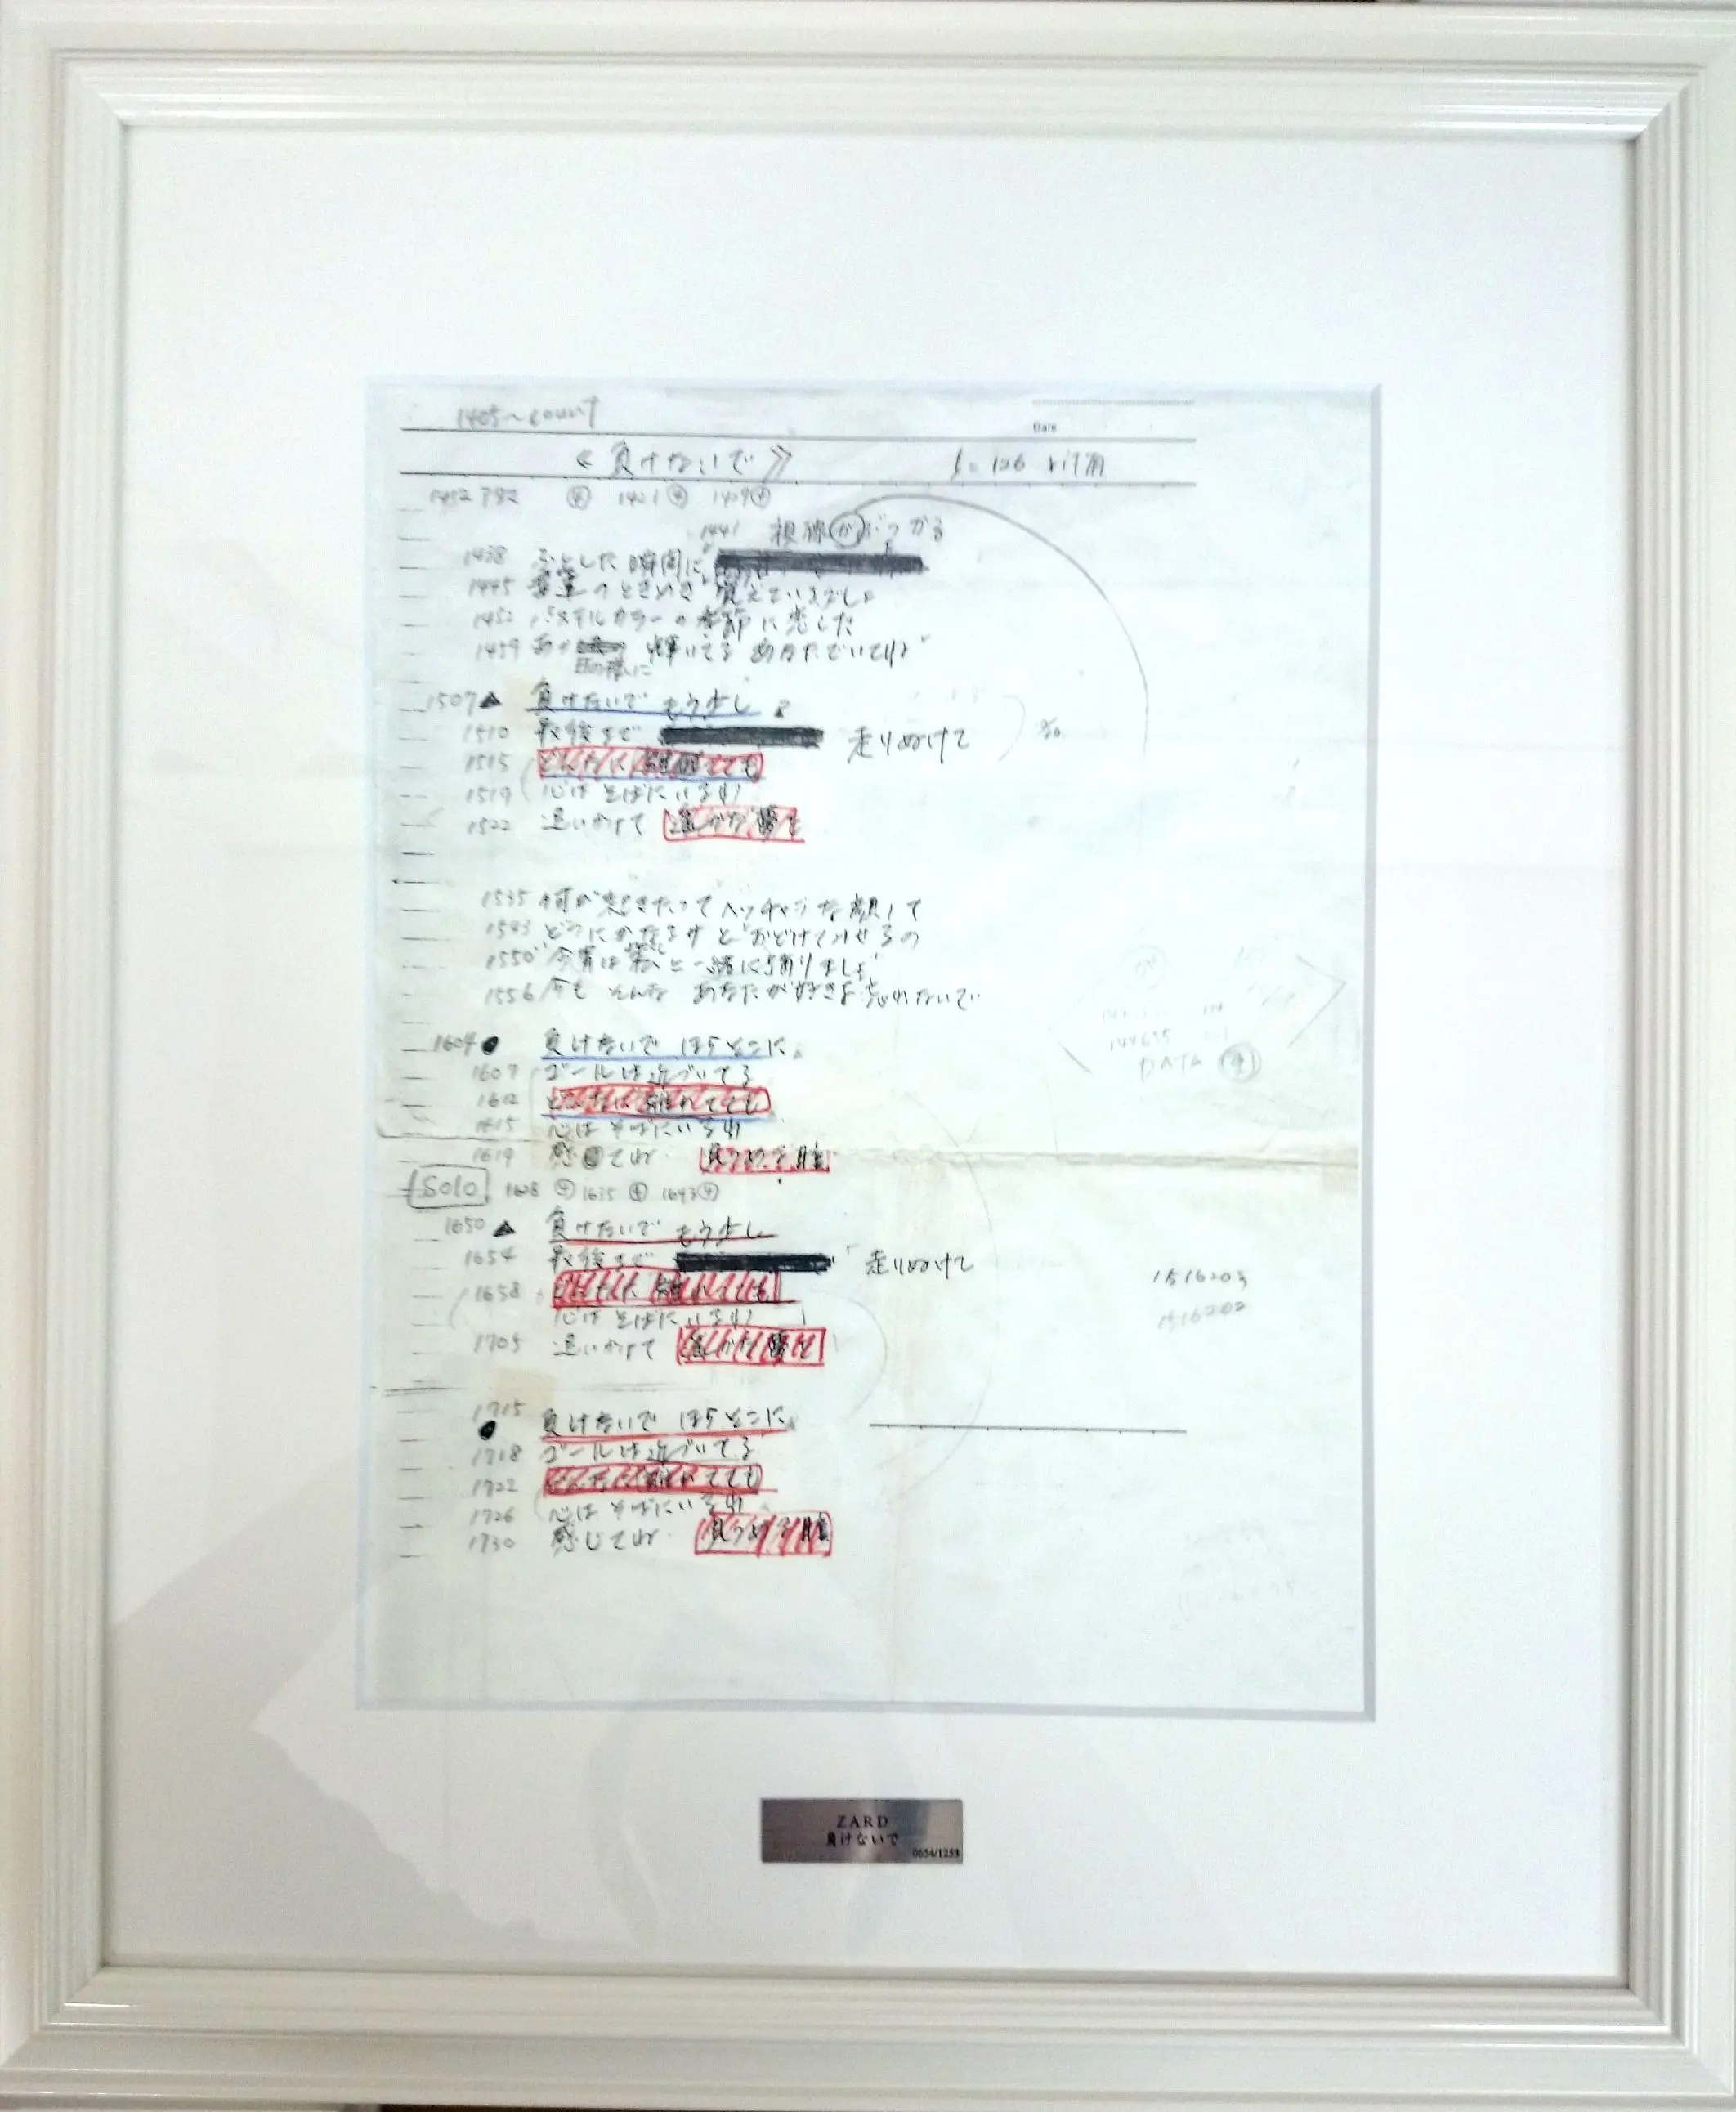 1405~count
Date
《負けないで》
1438 ふとした瞬間に 1441 視線がぶつかる
1445 のときめき 覚えているでしょ
1452 パステルカラーの季節に恋した
1459 あの 日の様に 輝いてる あなたでいてね
1507▲ 負けないで もう少し
1510 最後まで 走りぬけて
1515 どんなに 離れてても
1519 心は そばにいるわ
1522 追いかけて 遥かな夢を
1535 何が起きたって ヘッチャラな顔して
1543 どうにかなるサと おどけてみせるの
1550 今宵は私と一緒に踊りましょ
1556 今も そんな あなたが好きよ 忘れないで
1604● 負けないで ほらそこに
1607 ゴールは近づいてる
1612 どんなに 離れてても
1615 心は そばにいるわ
1619 感じてね 見つめる瞳
Solo 1628 ④ 1635 ④ 1643④
1650▲ 負けないで もう少し
1654 最後まで 走りぬけて
1658 どんなに 離れてても
心は そばにいるわ
1705 追いかけて 遥かな夢を
1715
● 負けないで ほらそこに
1718 ゴールは近づいてる
1722 どんなに 離れてても
1726 心は そばにいるわ
1730 感じてね 見つめる瞳
DATA ④
1516203
1516202
ZARD
負けないで
0654/1253